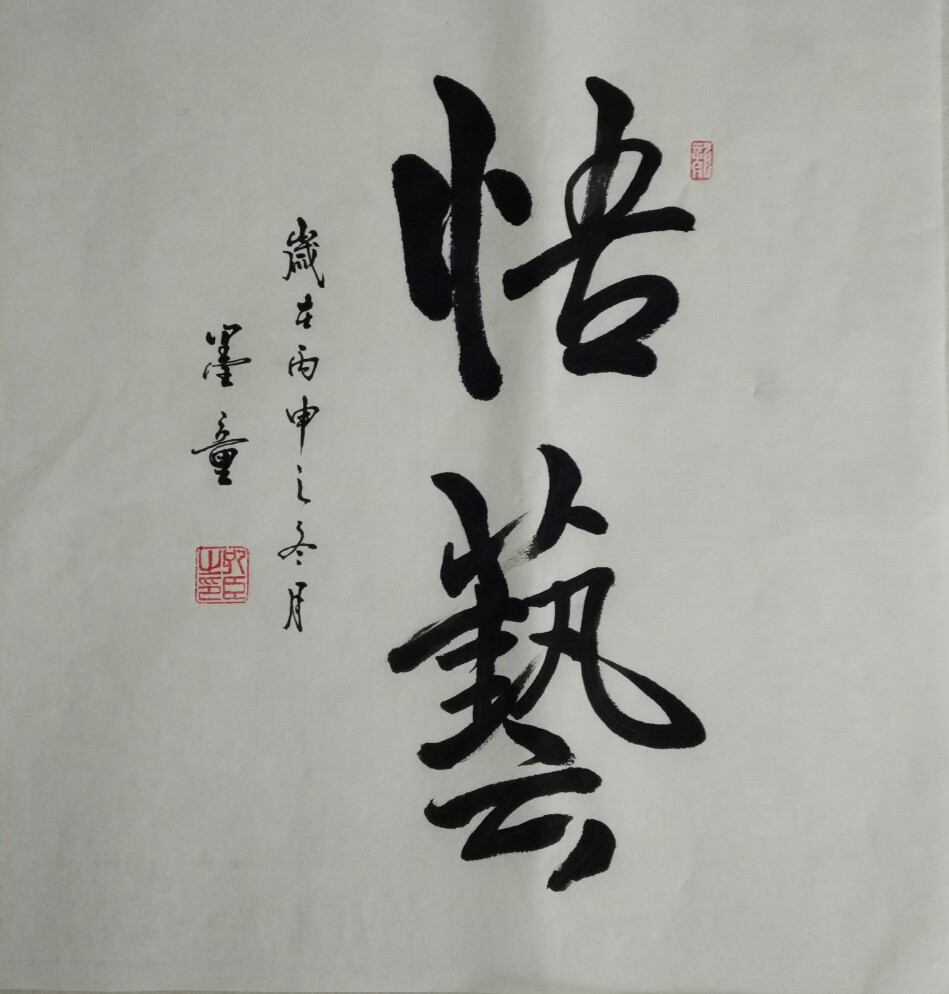 悟
藝
歲在丙申之冬月
墨童